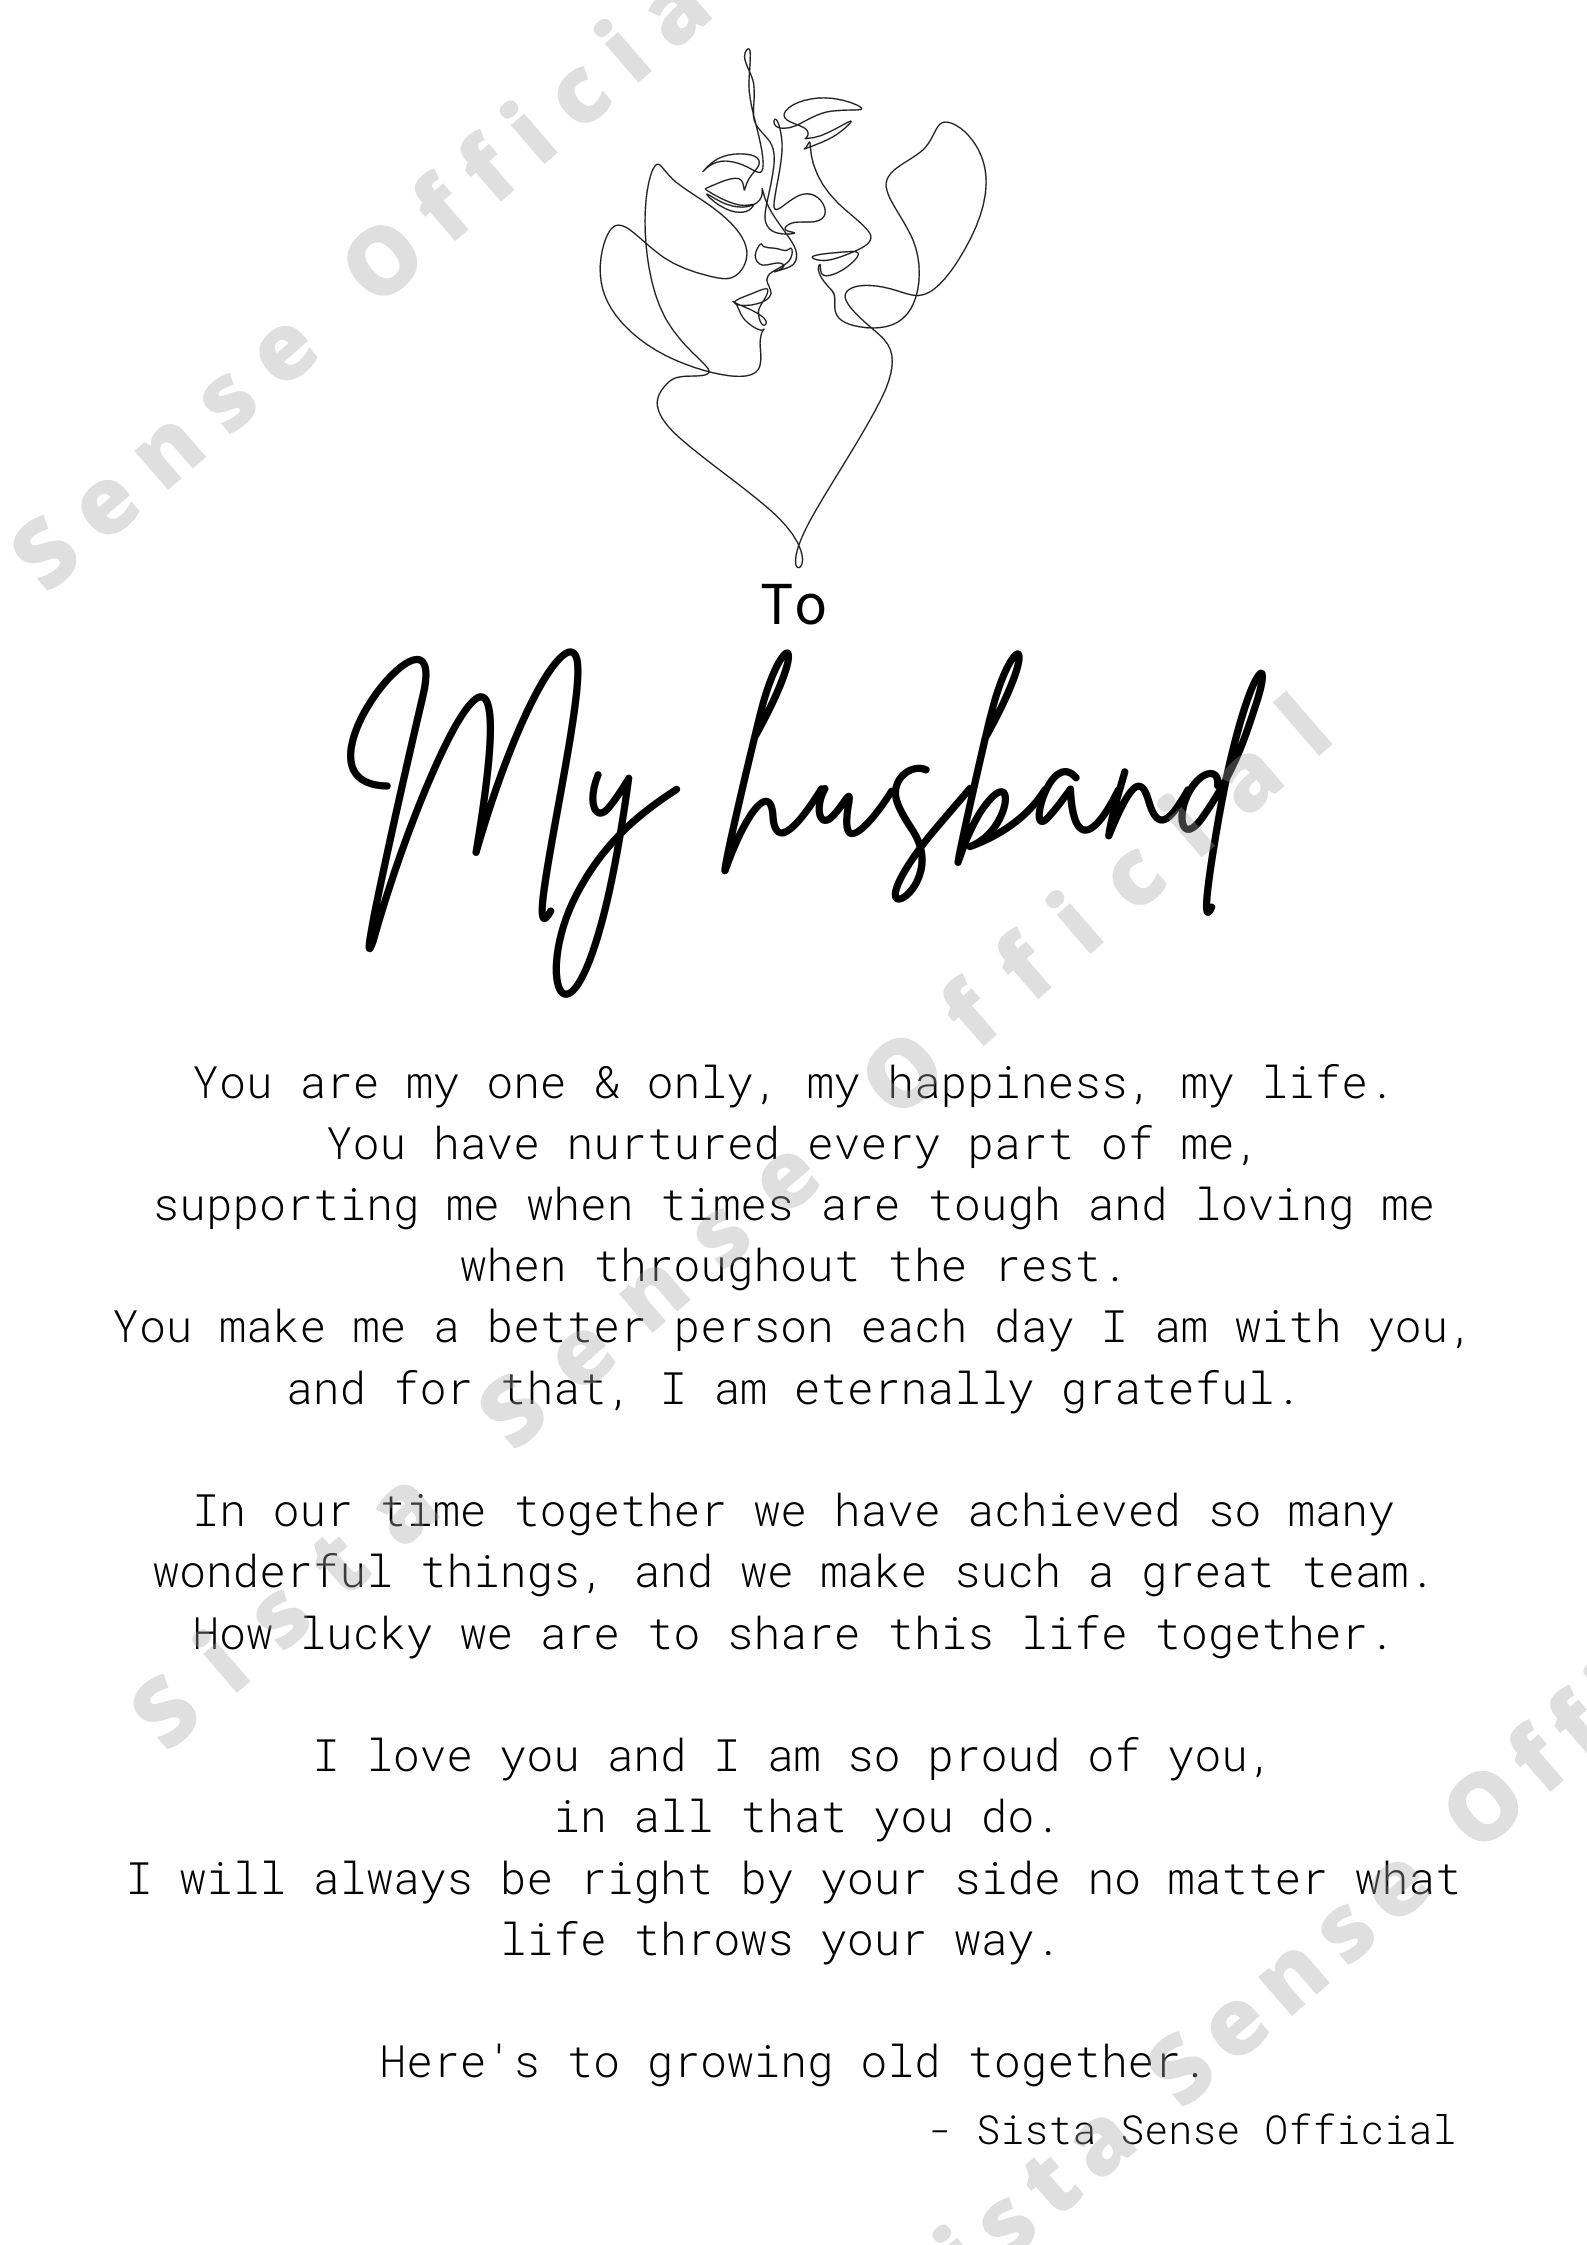 To
My husband
You are my one & only, my happiness, my life.
You have nurtured every part of me,
supporting me when times are tough and loving me
when throughout the rest.
You make me a better person each day I am with you,
and for that, I am eternally grateful.
In our time together we have achieved so many
wonderful things, and we make such a great team.
How lucky we are to share this life together.
I love you and I am so proud of you,
in all that you do.
I will always be right by your side no matter what
life throws your way.
Here's to growing old together.
- Sista Sense Official
Sense Officia
Sista Sense Official
ista Sense Offi